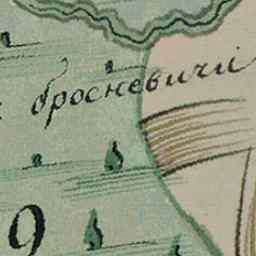 бросневичи
9